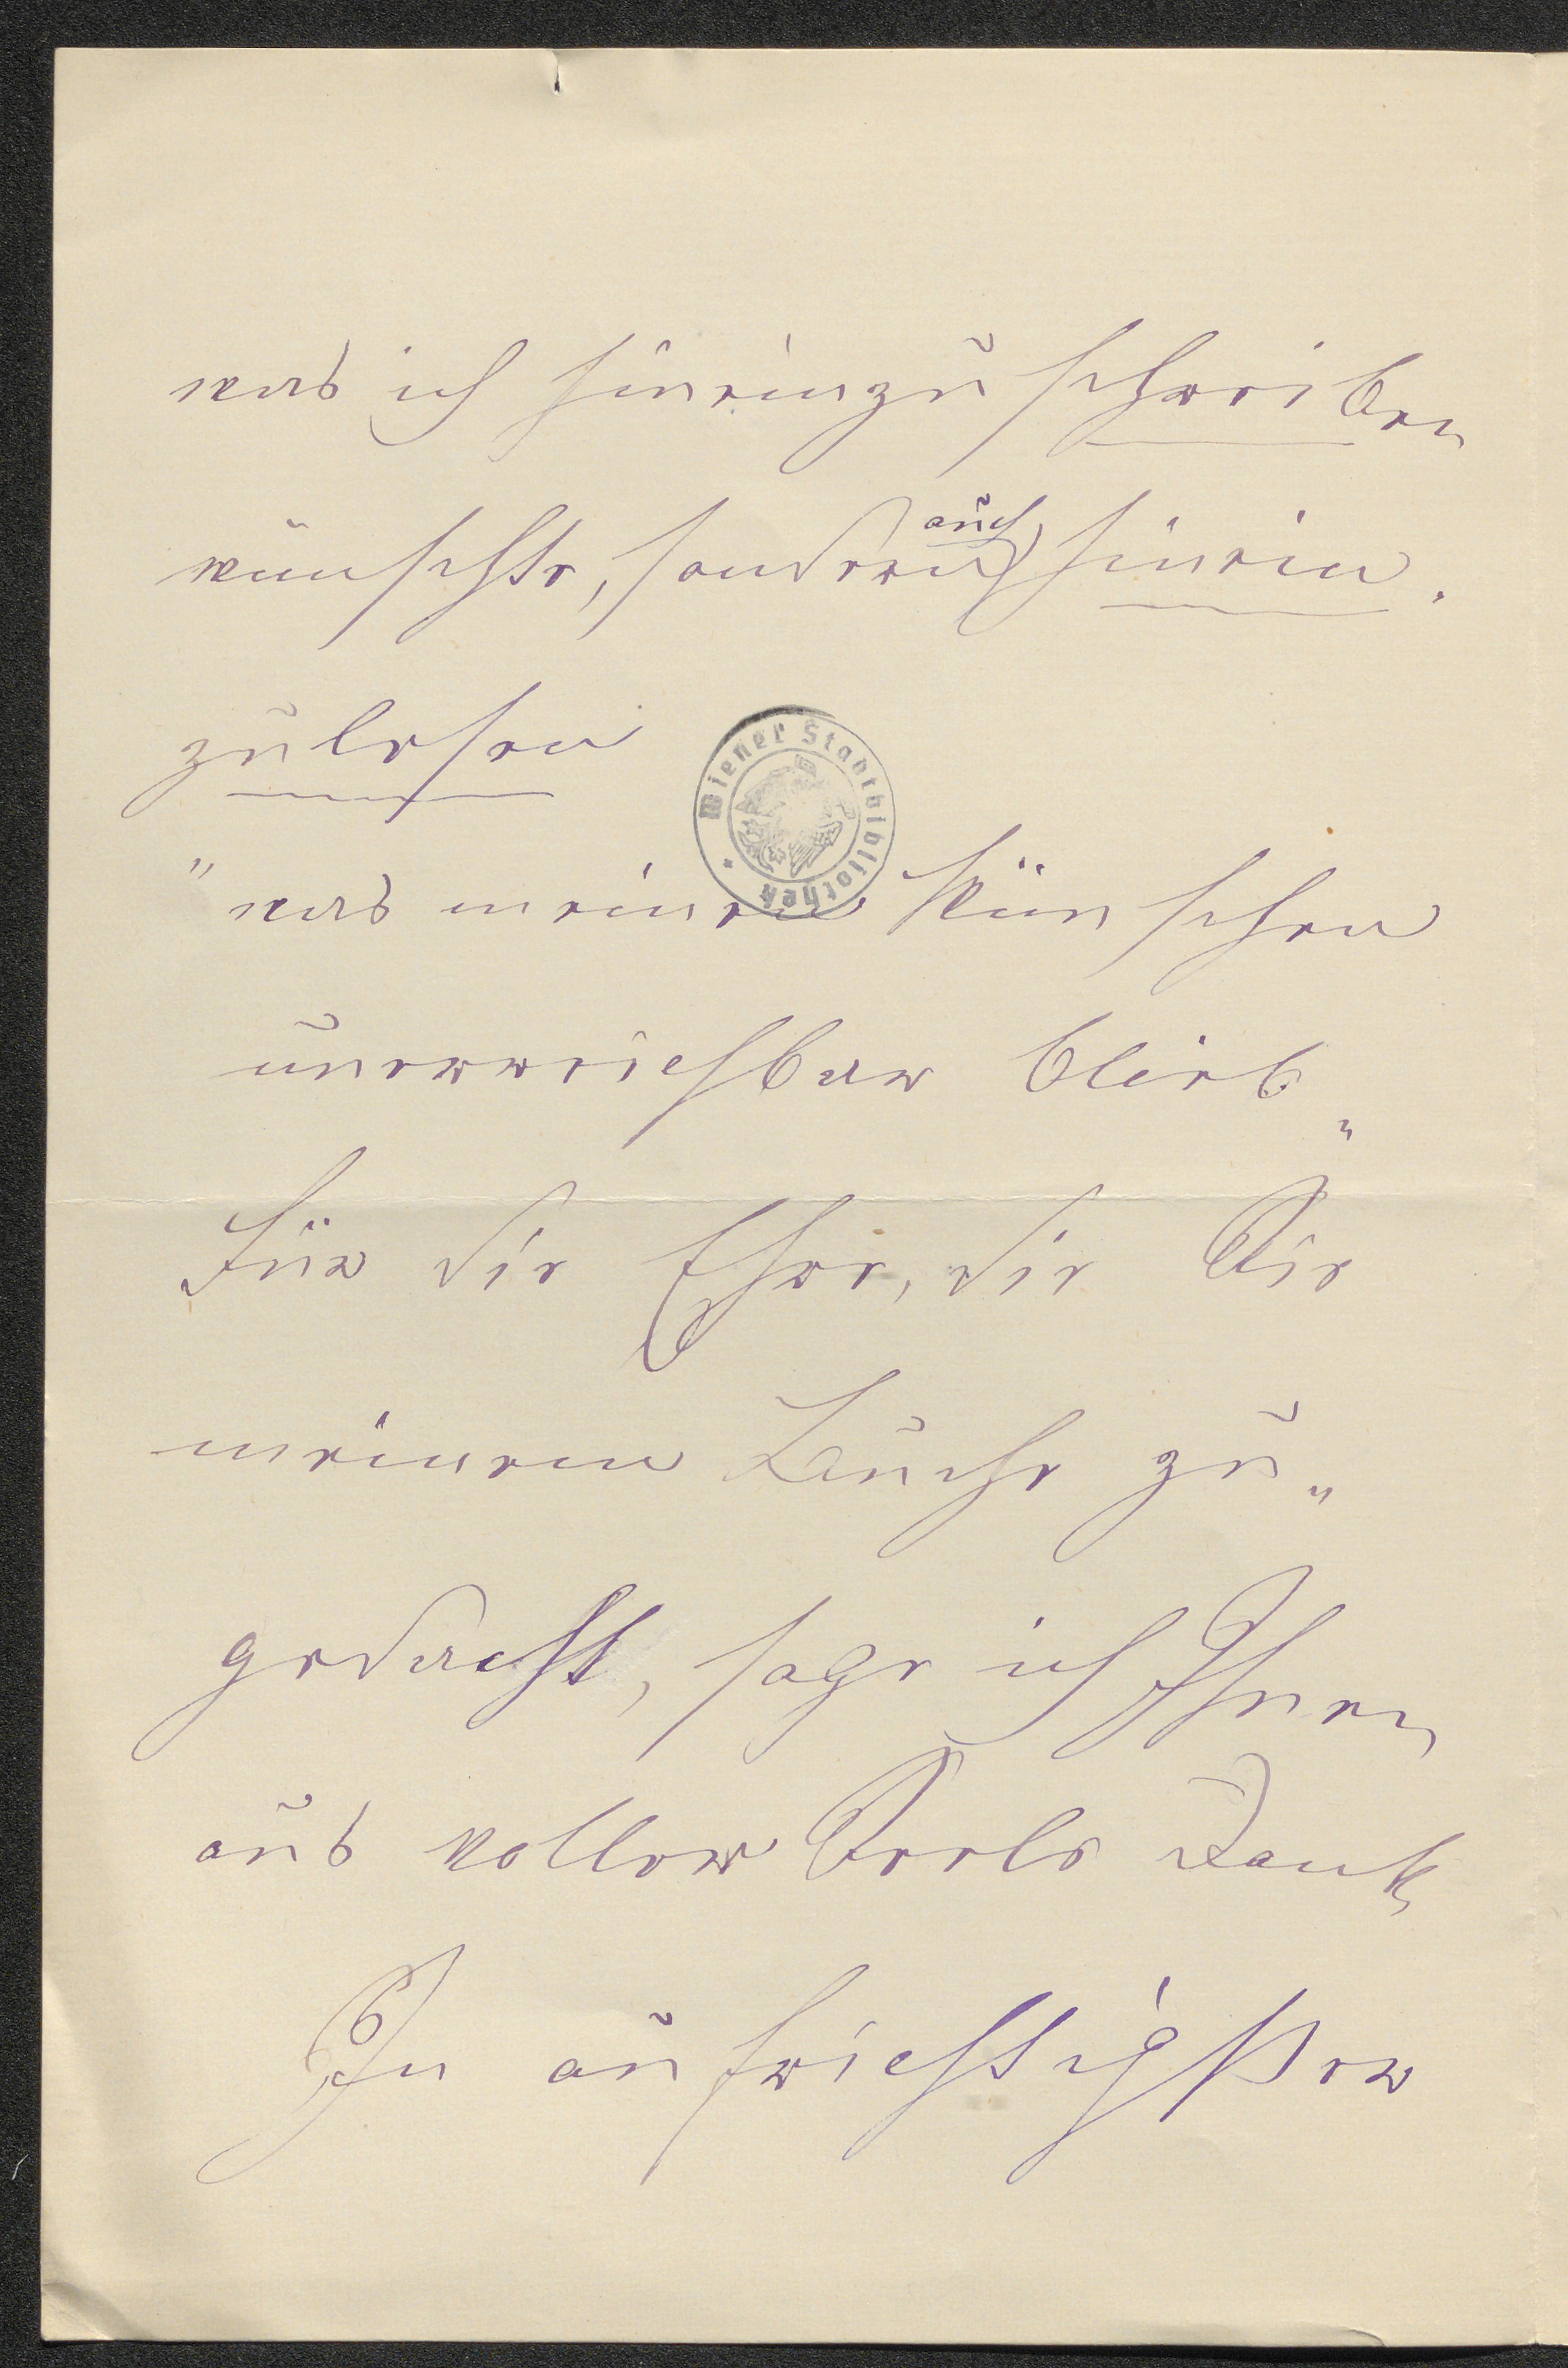 was ich hineinzuschreiben
wünschte, sondern auch hinein
zulesen
Wiener Stadtbibliothek
"was meinen Wünschen
unerreichbar blieb"
Für die Ehre, die Sie
meinem Buche zu"
gedacht, sage ich Ihnen
aus voller Seele Dank
In aufrichtigster